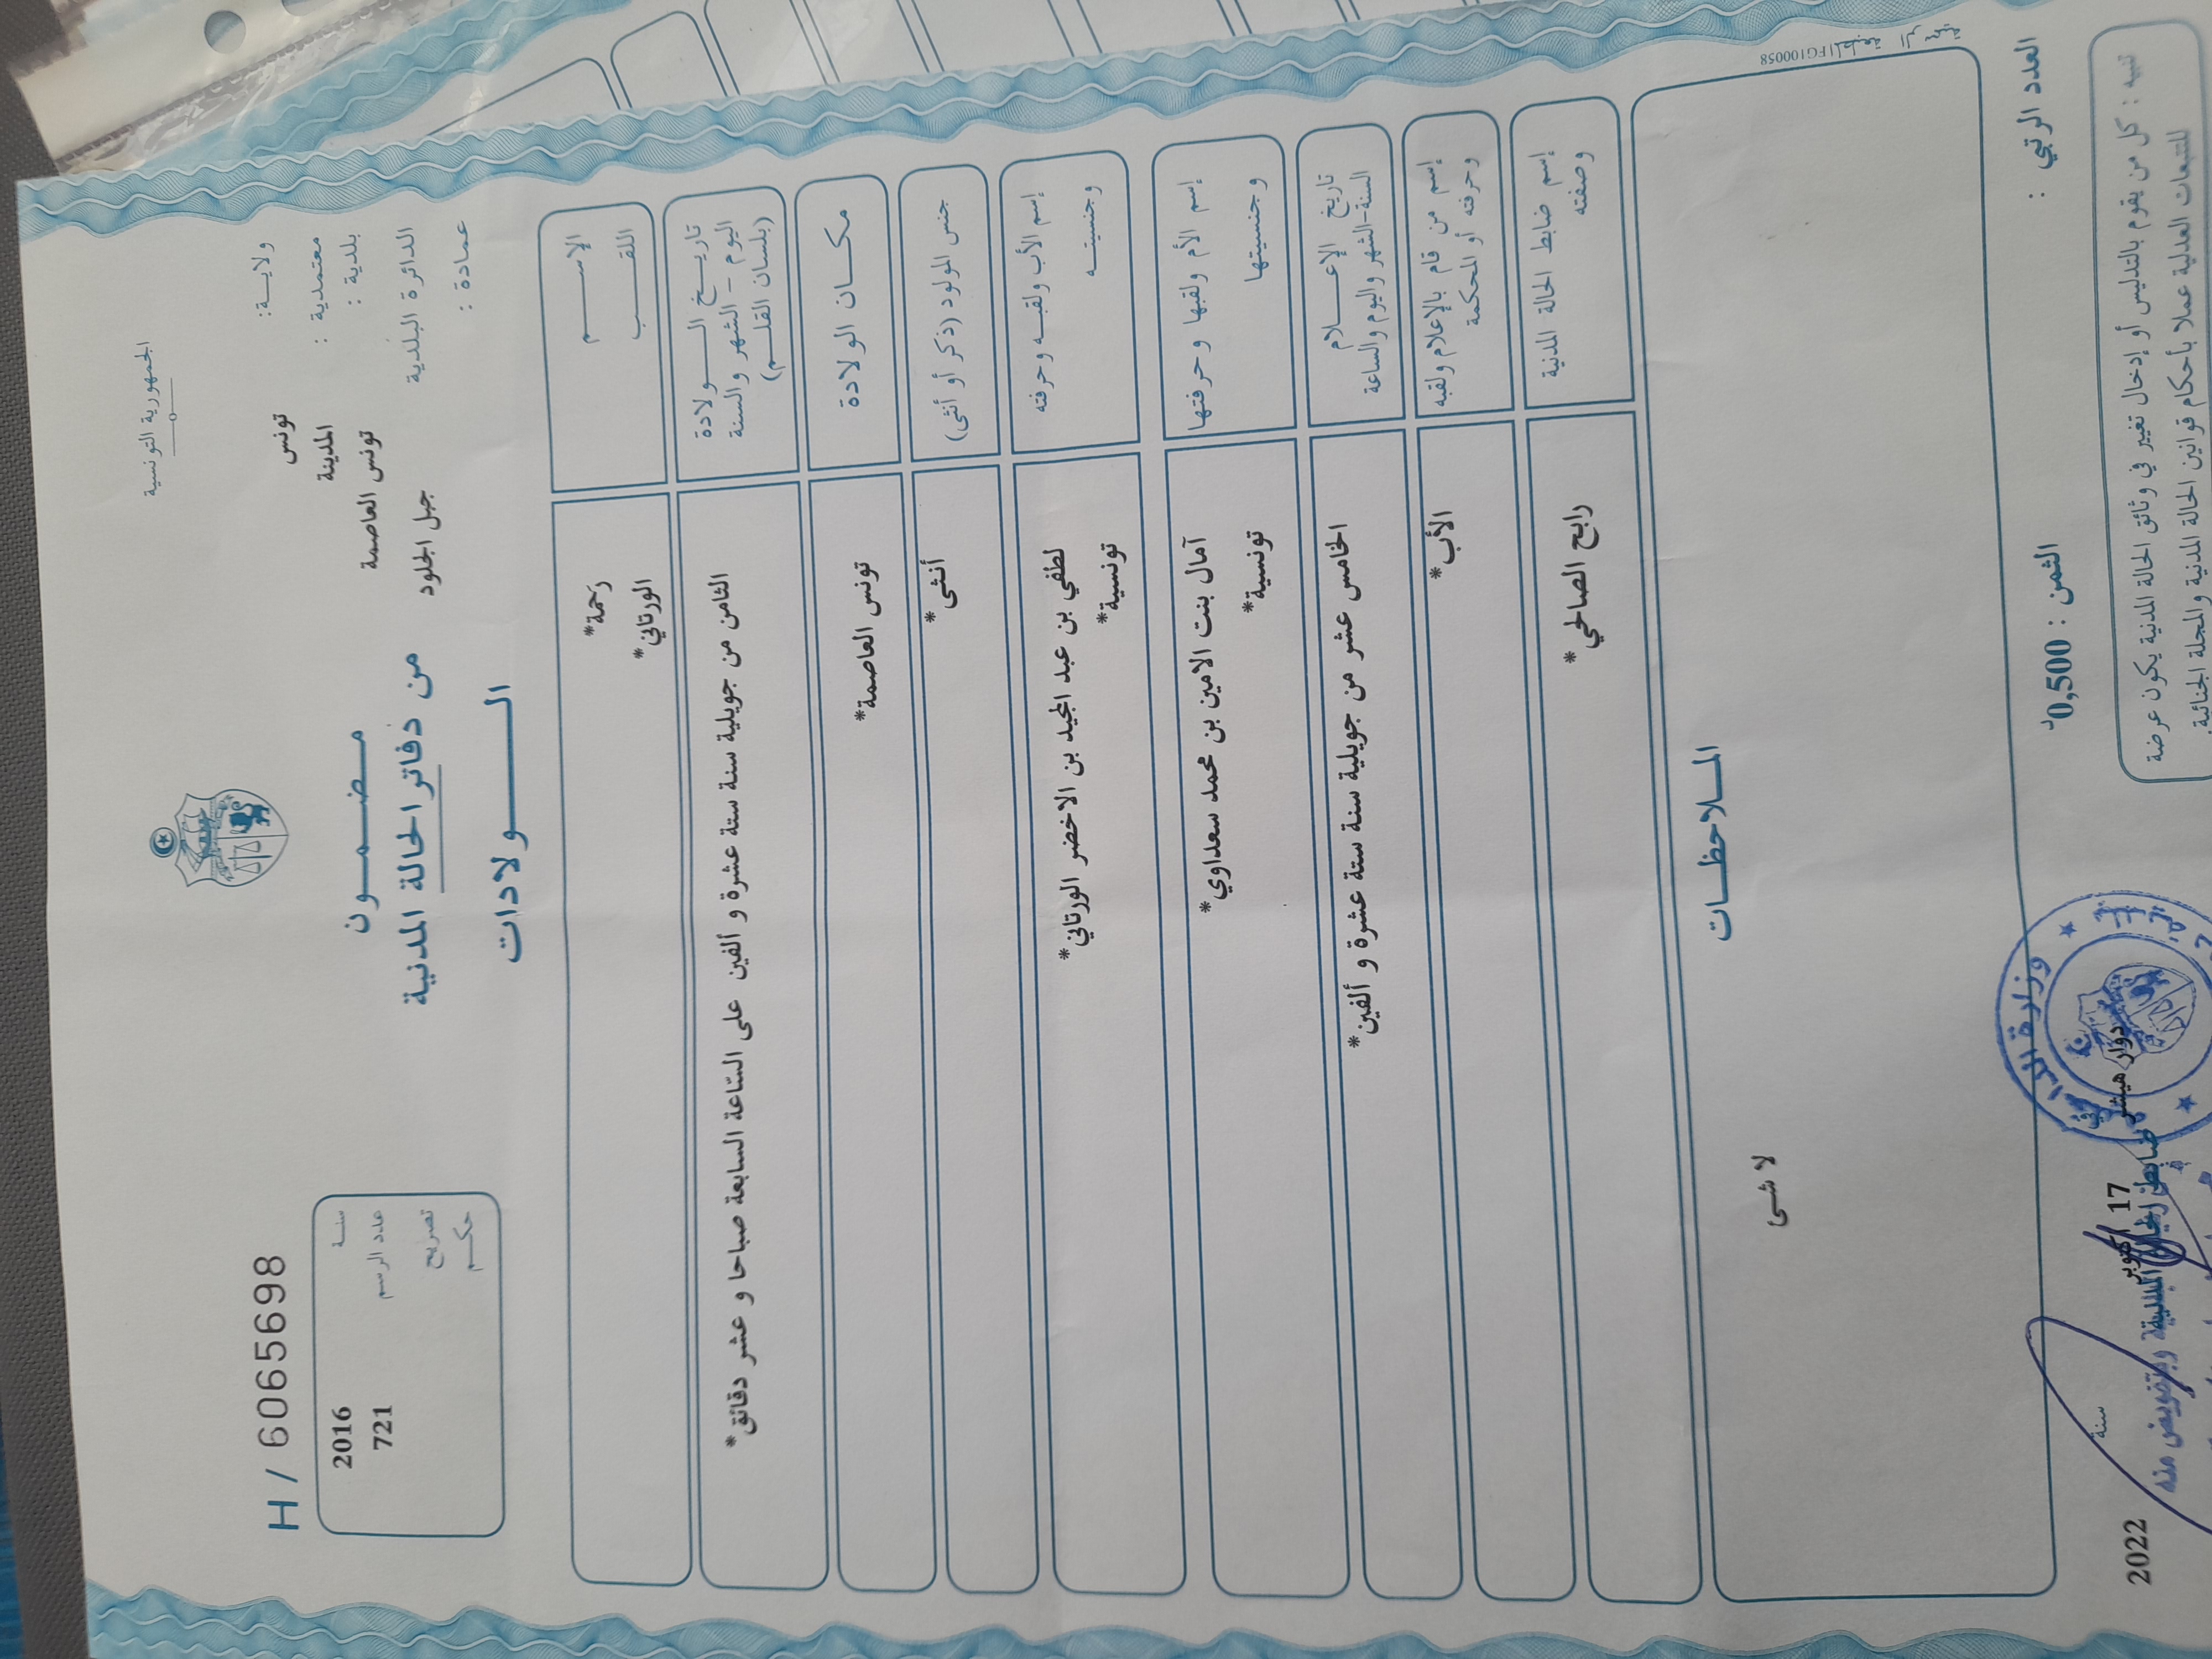 الجمهورية التونسية
ولاية: تونس
معتمدية : المدينة
بلدية : تونس العاصمة
الدائرة البلدية جبل الجلود
عمادة :
مضمون
من دفاتر الحالة المدنية
الولادات
H / 6065698
سنة 2016
عدد الرسم 721
تصريح
حكم
الإسم رحمة*
اللقب الورتاني*
تاريخ الولادة
اليوم - الشهر والسنة
(بلسان القلم)
الثامن من جويلية سنة ستة عشرة و ألفين على الساعة السابعة صباحا و عشر دقائق*
مكان الولادة تونس العاصمة*
جنس المولود (ذكر أو أنثى) أنثى*
إسم الأب ولقبه وحرفته لطفي بن عبد المجيد بن الاخضر الورتاني*
وجنسيته تونسية*
إسم الأم ولقبها وحرفتها آمال بنت الامين بن محمد سعداوي*
وجنسيتها تونسية*
تاريخ الإعلام
السنة-الشهر واليوم والساعة
الخامس عشر من جويلية سنة ستة عشرة و ألفين*
إسم من قام بالإعلام ولقبه
وحرفته أو المحكمة
الأب*
إسم ضابط الحالة المدنية
وصفته
رابح الصالحي*
الملاحظات
لا شئ
FG100058
العدد الرتبي :
الثمن : 0,500د
دوار هيشر في 17 أكتوبر سنة 2022
ضابط الحالة المدنية
وبتفويض منه
وزارة الد
تنبيه : كل من يقوم بالتدليس أو إدخال تغيير في وثائق الحالة المدنية يكون عرضة
للتتبعات العدلية عملا بأحكام قوانين الحالة المدنية والمجلة الجنائية